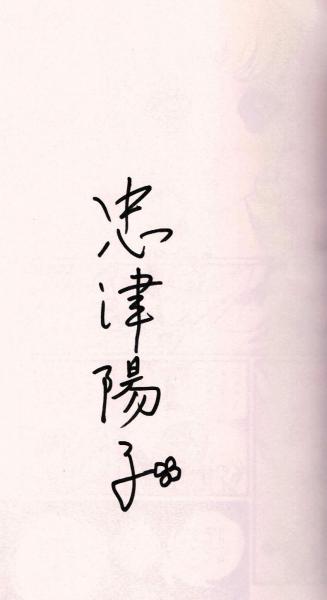 忠津陽子